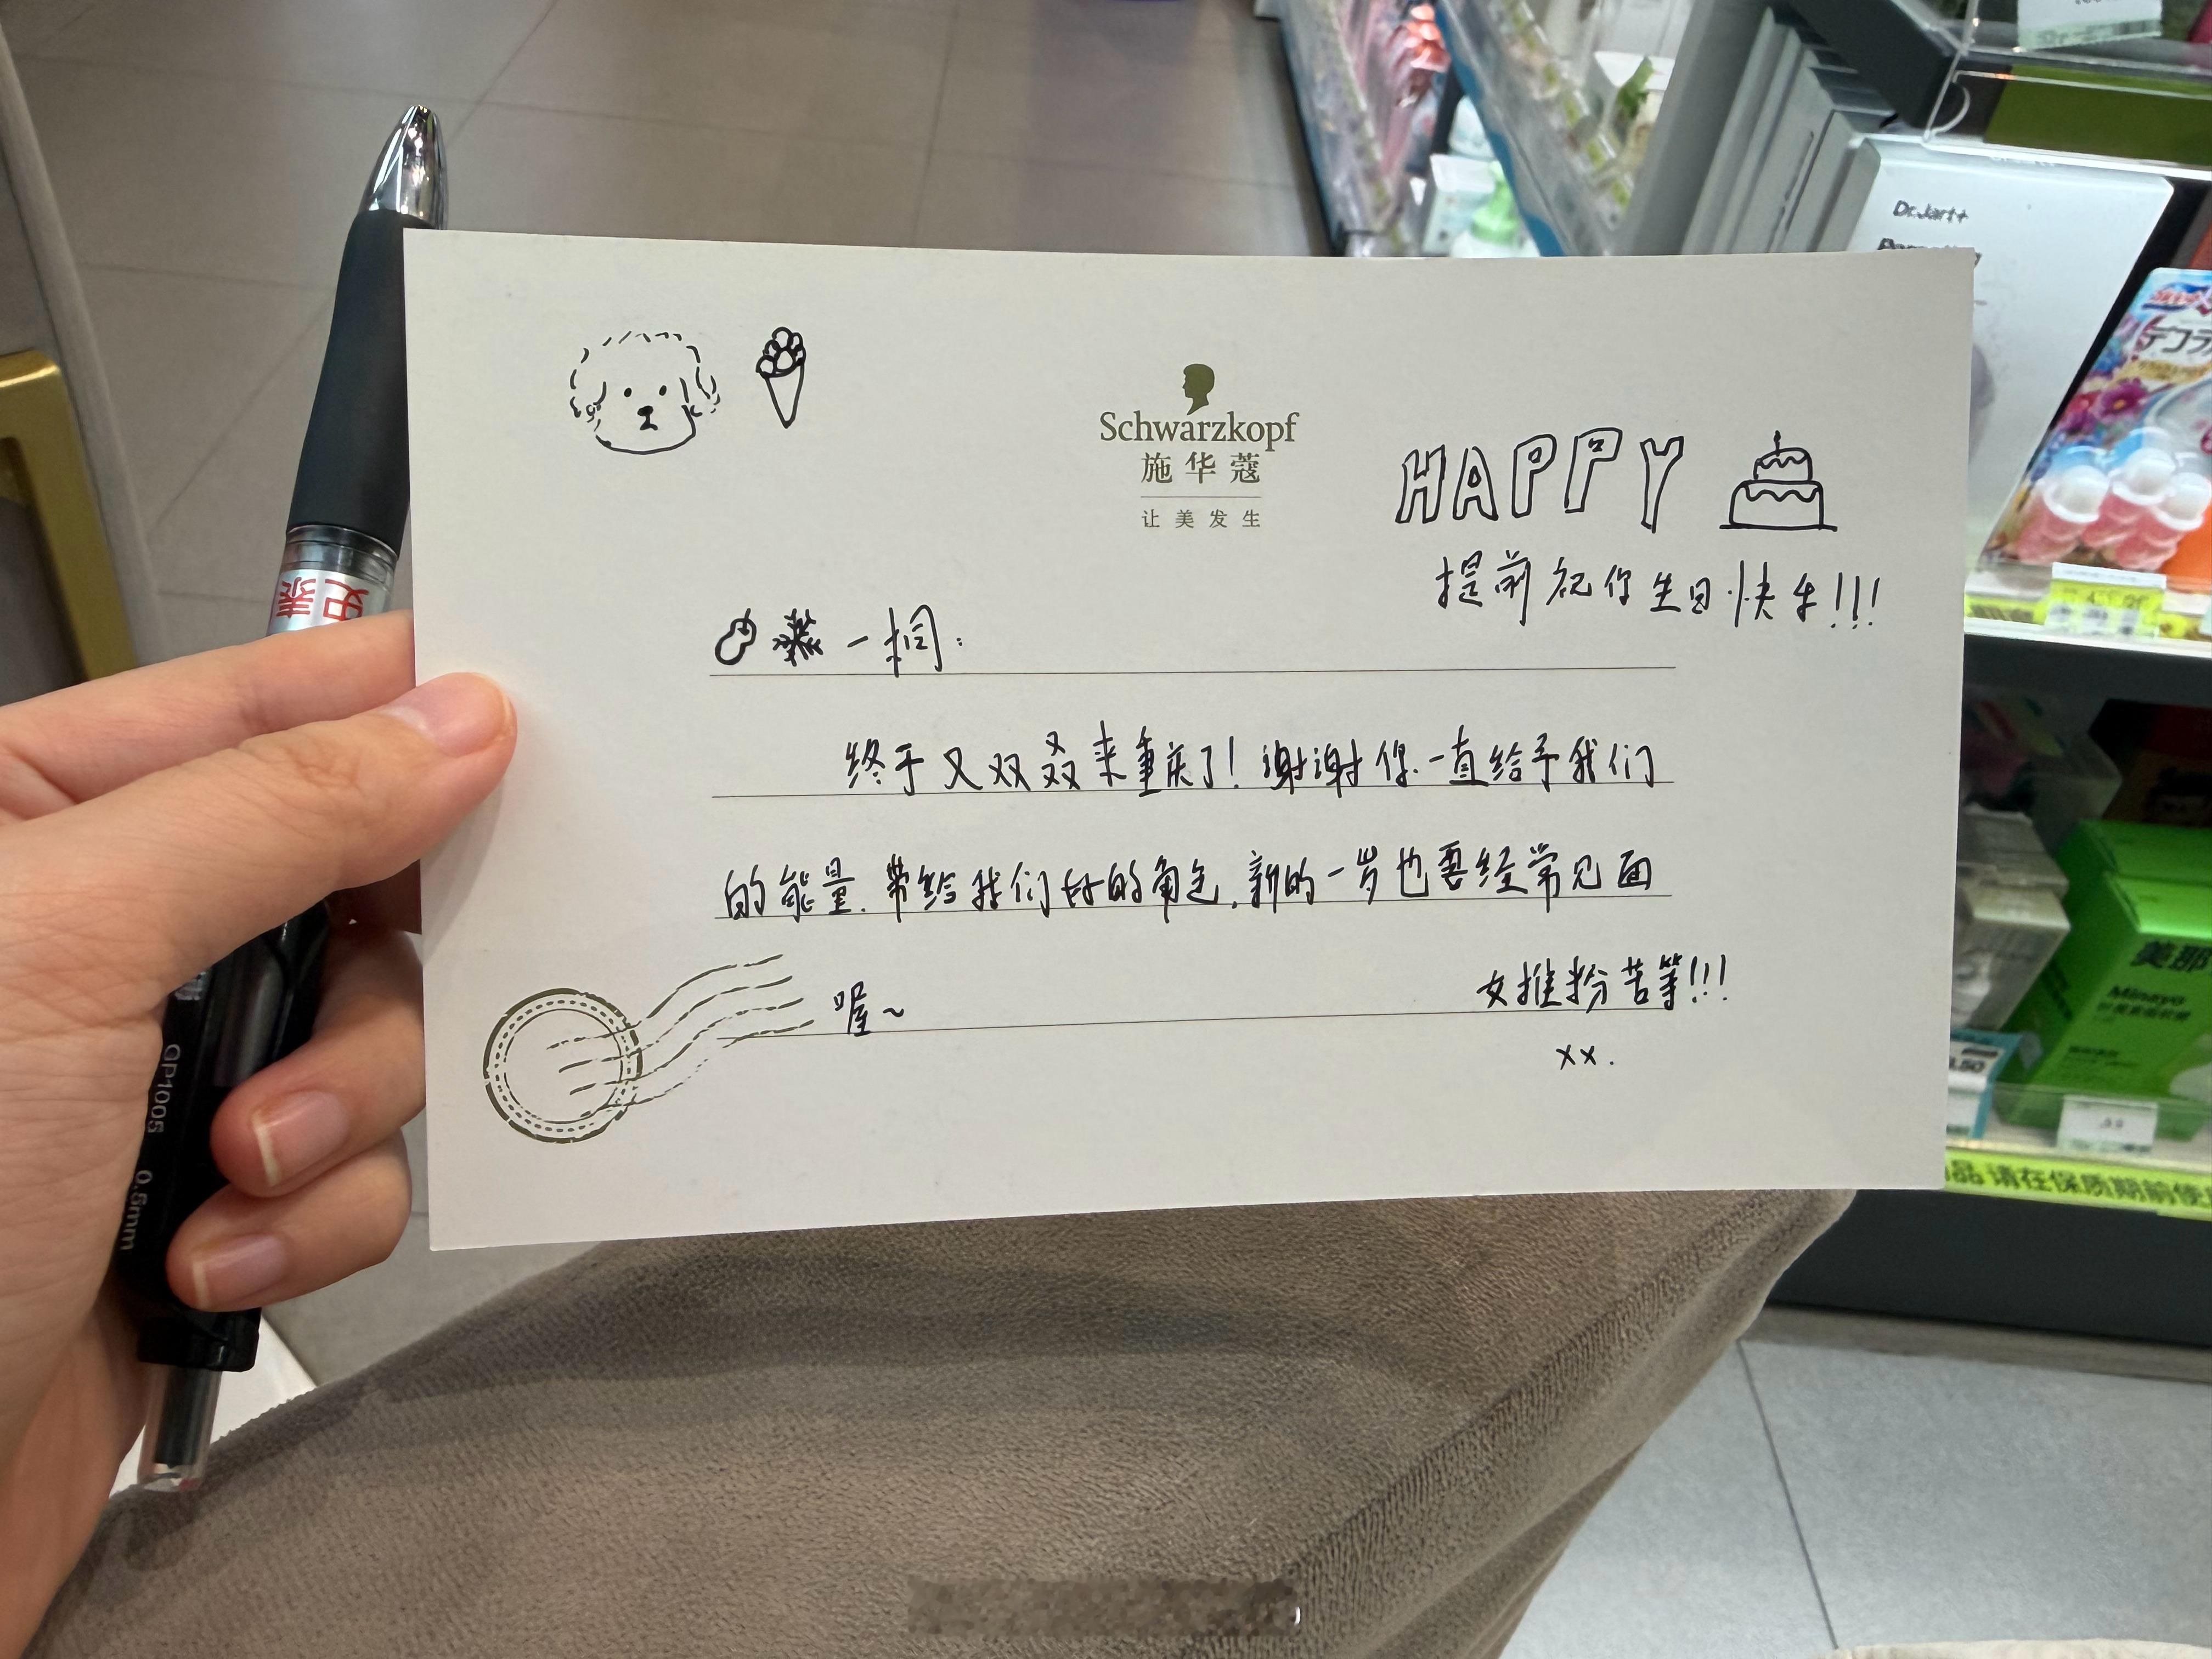 Schwarzkopf
施华蔻
让美发生
HAPPY
提前祝你生日快乐!!!
一桐：
终于又双叒来重庆了！谢谢你一直给予我们
的能量.带给我们好的角色.新的一岁也要经常见面
喔~
女推粉苦等!!!
xx.
史泰
GP1005 0.5mm
Dr.Jart+
デコラ
美那
Minayo
品 请在保质期前使